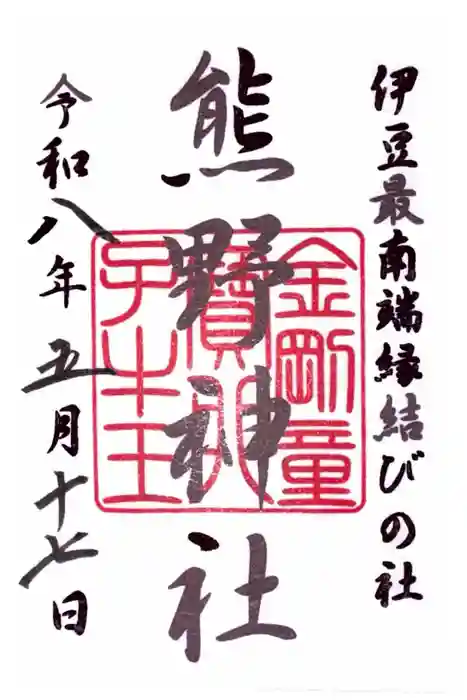 伊豆最南端縁結びの社
熊野神社
金剛童
子士王
令和八年五月十七日